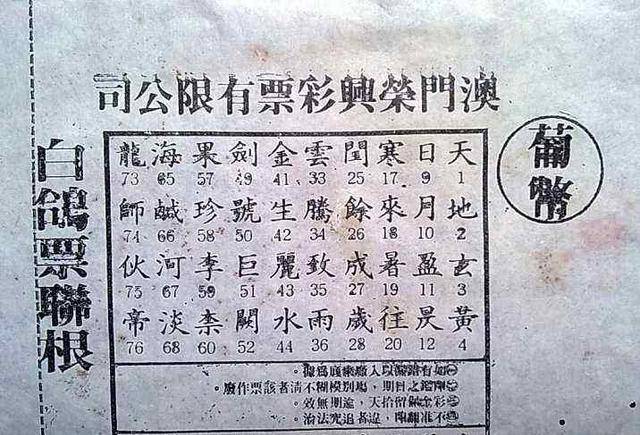 澳門榮興彩票有限公司
葡幣
天 日 寒 閏 雲 金 劍 果 海 龍
1 9 17 25 33 41 49 57 65 73
地 月 來 餘 騰 生 號 珍 鹹 師
2 10 18 26 34 42 50 58 66 74
玄 盈 暑 成 致 麗 巨 李 河 伙
3 11 19 27 35 43 51 59 67 75
黃 昃 往 歲 雨 水 闕 柰 淡 帝
4 12 20 28 36 44 52 60 68 76
如有錯漏以入廠票底為據。
之日期,場別模糊不清者該票作廢。
彩金保留拾天,逾期無效。
不准翻印,違者追究法治。
白鴿票聯根